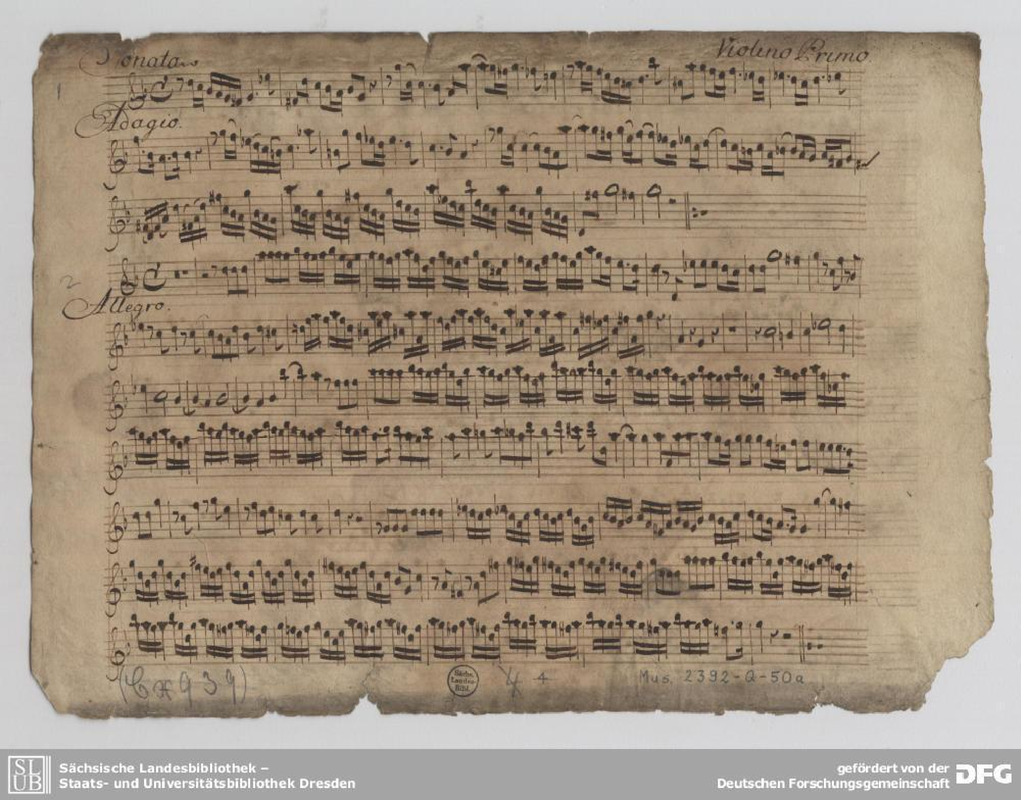 Sonata
Violino Primo
1
Adagio.
2
Allegro.
(Cx 939)
Sächs.
Landes
Bibl.
4
Mus. 2392-Q-50a
SLUB
Sächsische Landesbibliothek –
Staats- und Universitätsbibliothek Dresden
gefördert von der
Deutschen Forschungsgemeinschaft
DFG